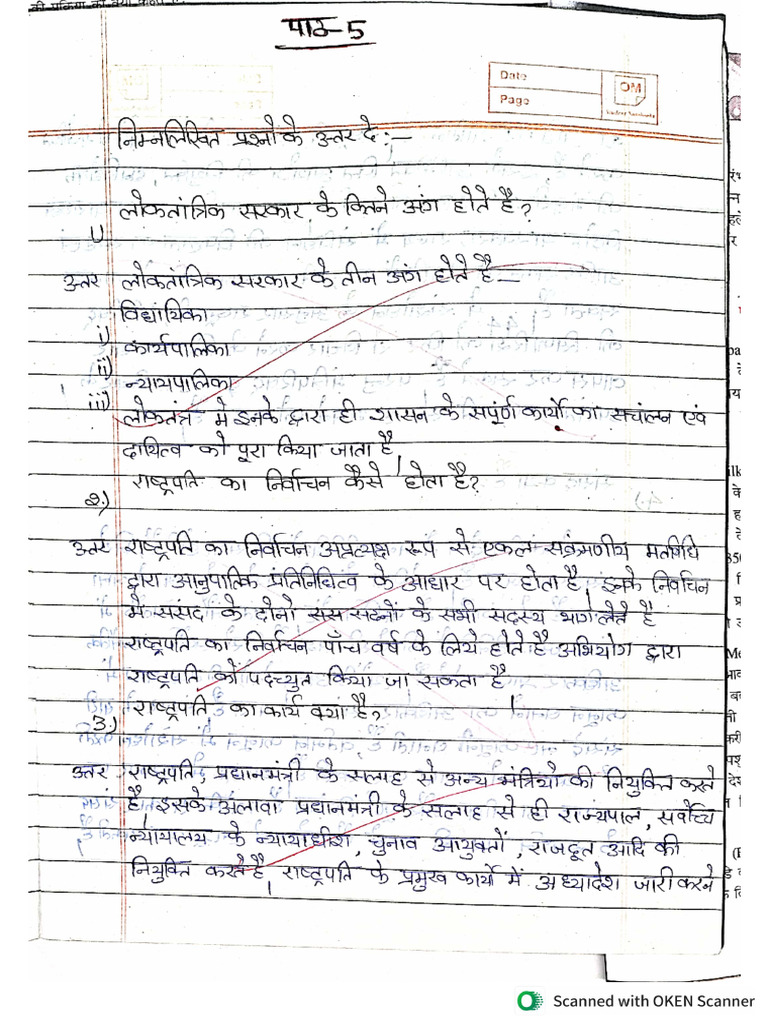 पाठ-5
Date
Page
OM
निम्नलिखित प्रश्नो के उत्तर दे:-
लोकतांत्रिक सरकार के कितने अंग होते है?
1)
उत्तर लोकतांत्रिक सरकार के तीन अंग होते है—
विधायिका
i) कार्यपालिका
ii) न्यायपालिका
iii) लोकतंत्र मे इनके द्वारा ही शासन के सपूंर्ण कार्यो का सचांलन एवं
दायित्व को पूरा किया जाता है।
राष्ट्रपति का निर्वाचन कैसे होता है?
2.)
उत्तर राष्ट्रपति का निर्वाचन अप्रत्यक्ष रूप से एकल सक्रंमणीय मतविधि
द्वारा आनुपातिक प्रतिनिधित्व के आधार पर होता है, इनके निर्वाचन
मे संसद के दोनो सस सदनों के सभी सदस्य भाग लेते है
राष्ट्रपति का निर्वाचन पाँच वर्ष के लिये होते है अभियोग द्वारा
राष्ट्रपति को पदच्युत किया जा सकता है।
राष्ट्रपति का कार्य क्या है?
3.)
उत्तर राष्ट्रपति प्रधानमंत्री के सलाह से अन्य मंत्रियो की नियुक्ति करते
है। इसके अलावा प्रधानमंत्री के सलाह से ही राज्यपाल, सर्वोच्च
न्यायालय के न्यायाधीश, चुनाव आयुक्तों, राजदूत आदि की
नियुक्ति करते है। राष्ट्रपति के प्रमुख कार्यो में अध्यादेश जारी करने
Scanned with OKEN Scanner